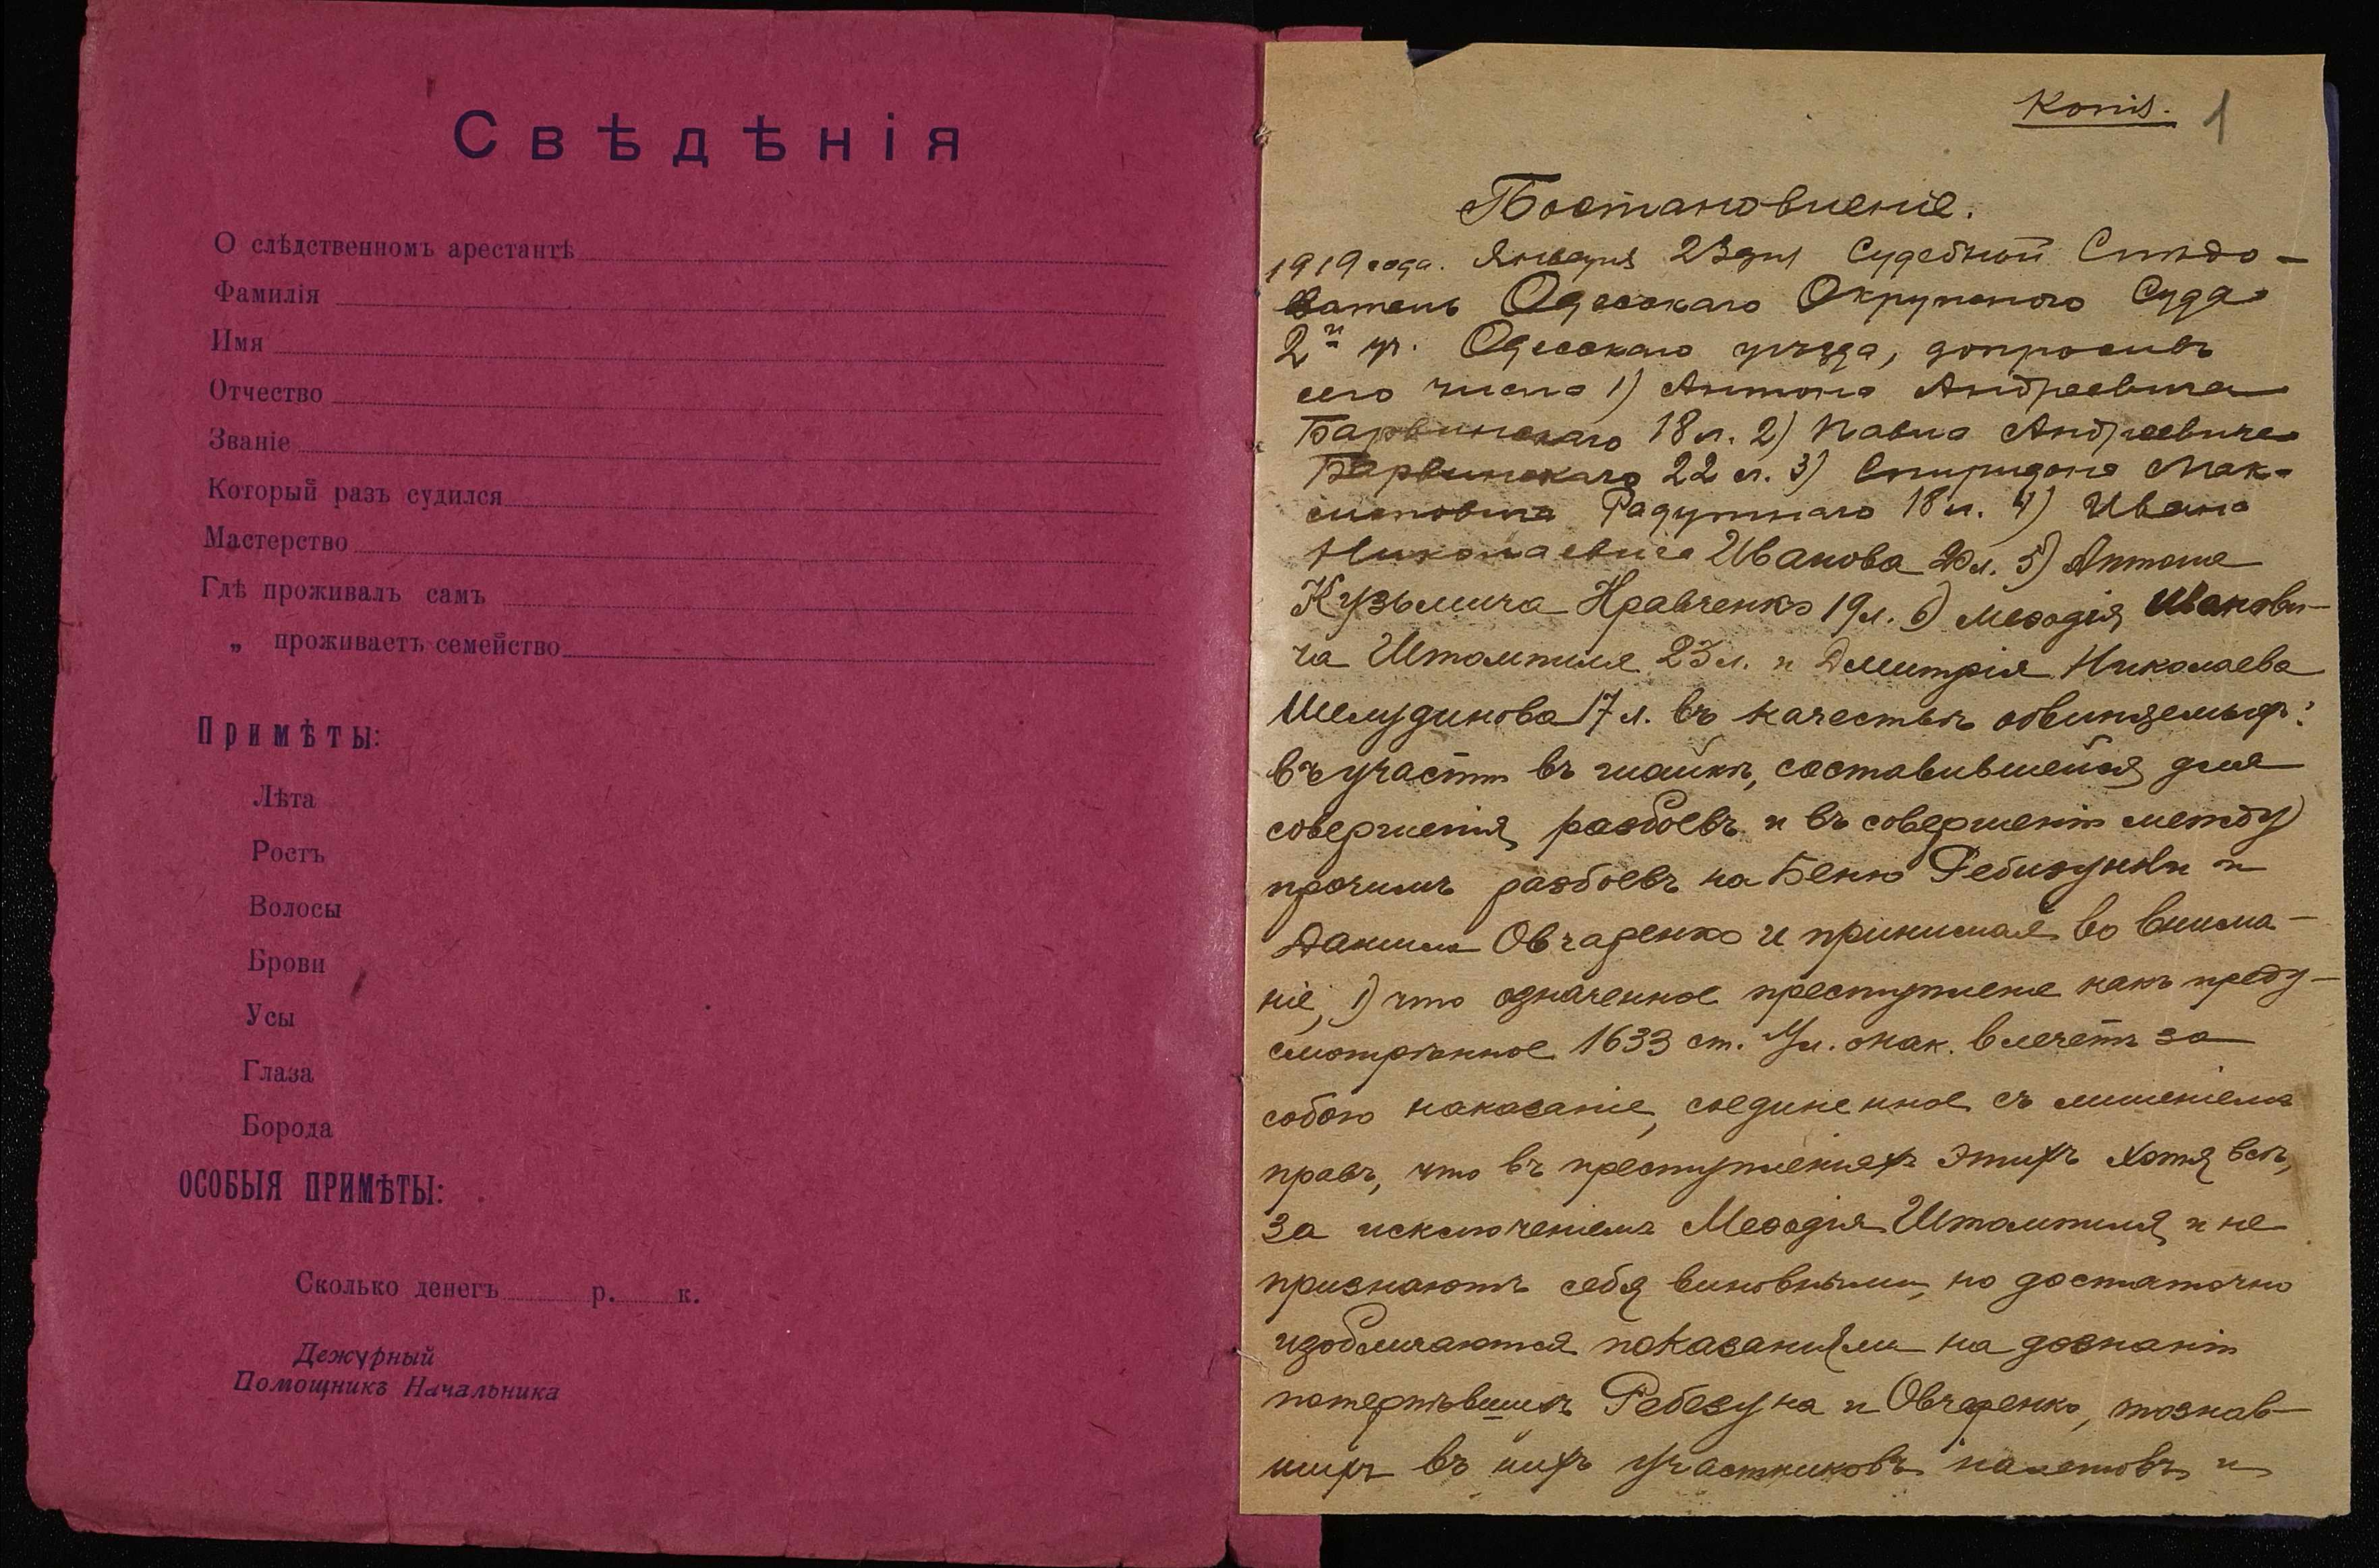 Свѣдѣнія
О слѣдственномъ арестантѣ
Фамилія
Имя
Отчество
Званіе
Который разъ судился
Мастерство
Гдѣ проживалъ самъ
„ проживаетъ семейство
Примѣты:
Лѣта
Ростъ
Волосы
Брови
Усы
Глаза
Борода
ОСОБЫЯ ПРИМѢТЫ:
Сколько денегъ р. к.
Дежурный
Помощникъ Начальника
Копія. 1
Постановленіе.
1919 года. Января 23 дня Судебный Слѣдо-
ватель Одесскаго Окружного Суда
2го уч. Одесскаго уѣзда, допросивъ
сего числа 1) Антона Андреевича
Барвинскаго 18 л. 2) Павла Андреевича
Барвинскаго 22 л. 3) Спиридона Мак-
симовича Радутнаго 18 л. 4) Ивана
Николаевича Иванова 20 л. 5) Антона
Кузьмича Кравченко 19 л. 6) Меѳодія Иванови-
ча Штомпиля 23 л. и Дмитрія Николаева
Шелудикова 17 л. въ качествѣ обвиняемыхъ:
въ участіи въ шайкѣ, составившейся для
совершенія разбоевъ и въ совершеніи между
прочимъ разбоевъ на Беню и
Данила Овчаренко и принимая во внима-
ніе, 1) что означенное преступленіе какъ преду-
смотрѣнное 1633 ст. Ул. о нак. влечетъ за
собою наказаніе, соединенное съ лишеніемъ
правъ, что въ преступленіяхъ этихъ хотя всѣ,
за исключеніемъ Меѳодія Штомпиля и не
признаютъ себя виновными, но достаточно
изобличаются показаніями на дознаніи
потерпѣвшихъ Ребезуна и Овчаренко, опознав-
шихъ въ нихъ участниковъ налетовъ и